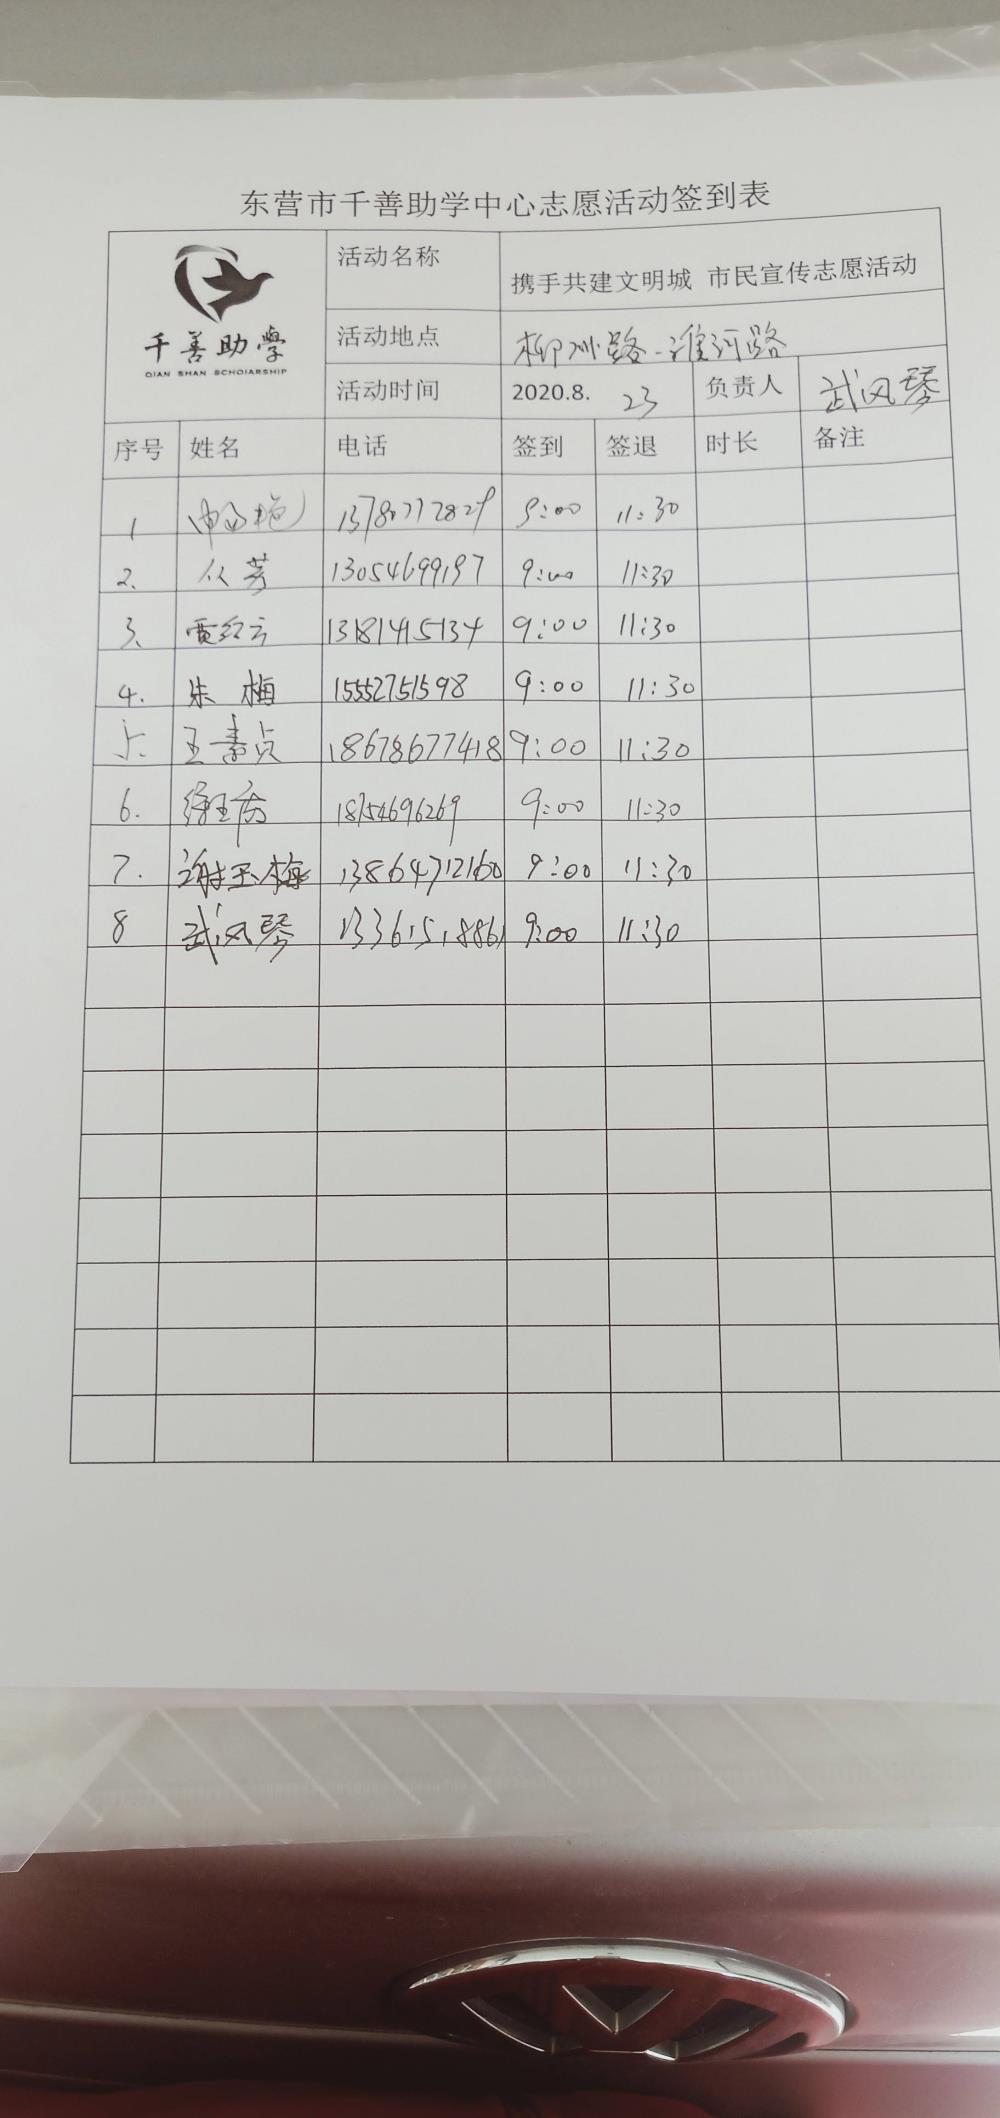 东营市千善助学中心志愿活动签到表
千善助学
QIAN SHAN SCHOIARSHIP
活动名称 携手共建文明城 市民宣传志愿活动
活动地点 柳州路-淮河路
活动时间 2020.8. 23 负责人 武风琴
序号 姓名 电话 签到 签退 时长 备注
1 9:00 11:30
2. 从芳 13054699197 9:00 11:30
3、 贾红云 13181415134 9:00 11:30
4. 朱梅 15552751598 9:00 11:30
5. 王素贞 18678677418 9:00 11:30
6. 18754696269 9:00 11:30
7. 谢玉梅 13864712160 9:00 11:30
8 武风琴 13361518861 9:00 11:30